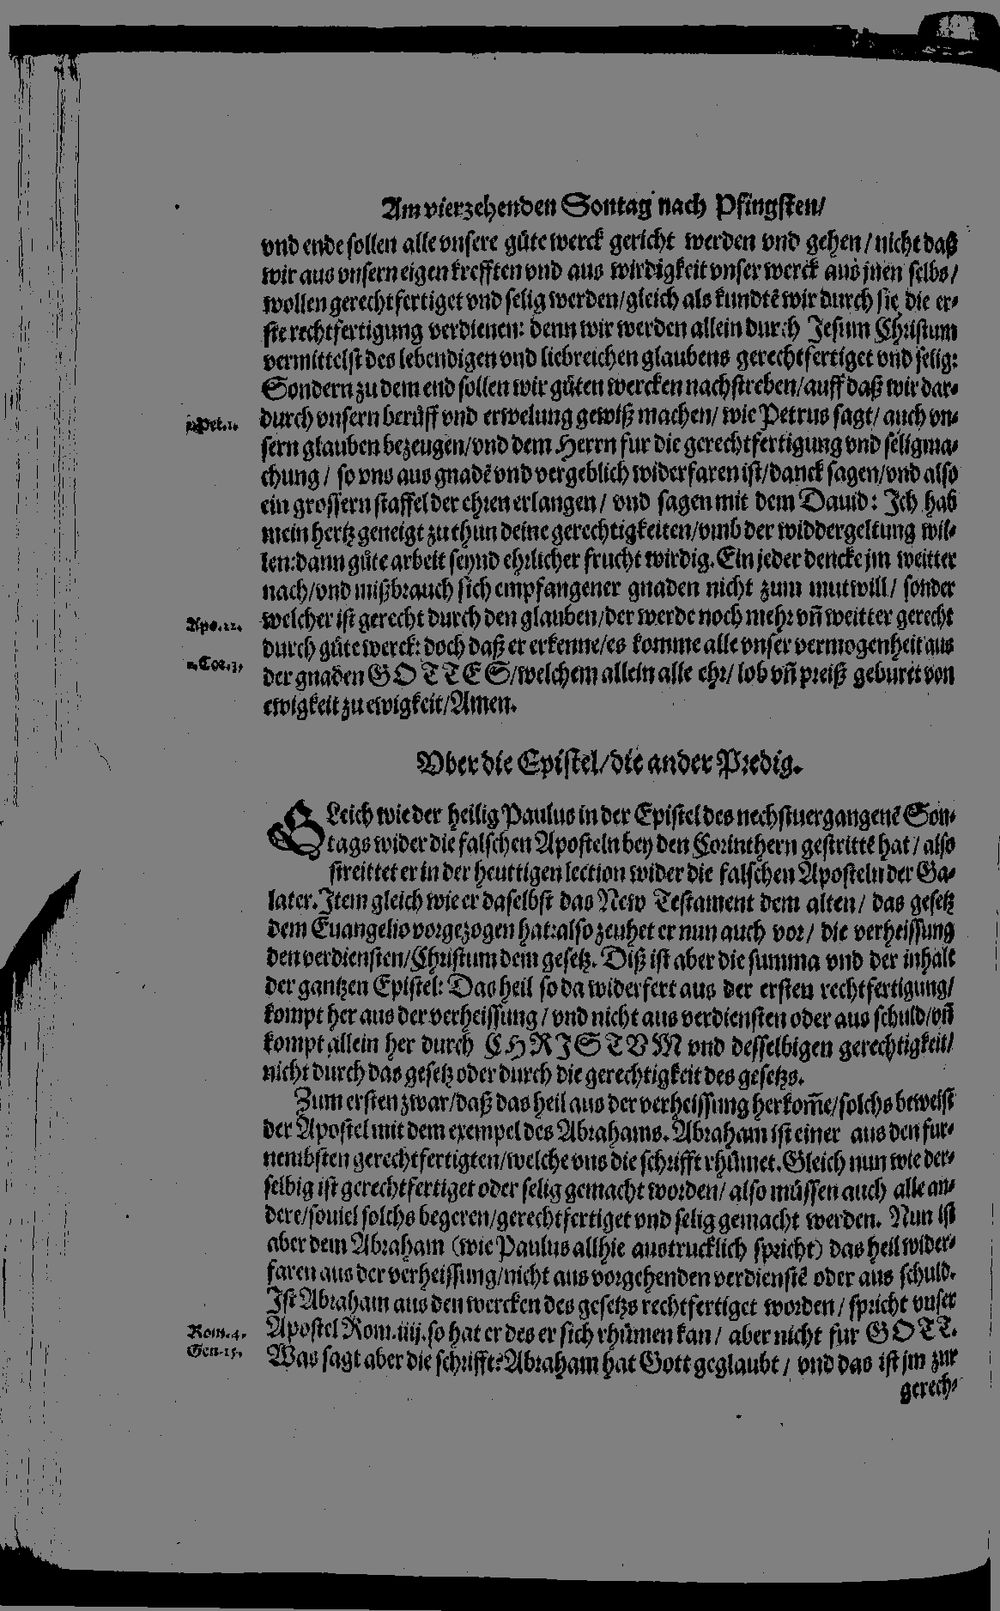 Am vierzehenden Sontag nach Pfingsten/
vnd ende sollen alle vnsere gůte werck gericht werden vnd gehen/ nicht daß
wir aus vnsern eigen krefften vnd aus wirdigkeit vnser werck aus jnen selbs/
wollen gerechtfertiget vnd selig werden/ gleich als kundtē wir durch sie die er-
ste rechtfertigung verdienen: denn wir werden allein durch Jesum Christum
vermittelst des lebendigen vnd liebreichen glaubens gerechtfertiget vnd selig:
Sondern zu dem end sollen wir gůten wercken nachstreben/ auff daß wir dar-
2. Pet. 1.
durch vnsern berůff vnd erwelung gewiß machen/ wie Petrus sagt/ auch vn-
sern glauben bezeugen/ vnd dem Herrn fur die gerechtfertigung vnd seligma-
chung/ so vns aus gnadē vnd vergeblich widerfaren ist/ danck sagen/ vnd also
ein grossern staffel der ehren erlangen/ vnd sagen mit dem Dauid: Ich hab
mein hertz geneigt zu thun deine gerechtigkeiten/ vmb der widdergeltung wil-
len: dann gůte arbeit seynd ehrlicher frucht wirdig. Ein jeder dencke jm weitter
nach/ vnd mißbrauch sich empfangener gnaden nicht zum mutwill/ sonder
Apo. 22.
welcher ist gerecht durch den glauben/ der werde noch mehr vn̄ weitter gerecht
durch gůte werck: doch daß er erkenne/ es komme alle vnser vermogenheit aus
2. Cor. 3.
der gnaden GOTTES/ welchem allein alle ehr/ lob vn̄ preiß geburt von
ewigkeit zu ewigkeit/ Amen.
Vber die Epistel/ die ander Predig.
GLeich wie der heilig Paulus in der Epistel des nechstuergangenē Son-
tags wider die falschen Aposteln bey den Corinthern gestrittē hat/ also
streittet er in der heuttigen lection wider die falschen Aposteln der Ga-
later. Item gleich wie er daselbst das New Testament dem alten/ das gesetz
dem Euangelio vorgezogen hat: also zeuhet er nun auch vor/ die verheissung
den verdiensten/ Christum dem gesetz. Diß ist aber die summa vnd der inhalt
der gantzen Epistel: Das heil so da widerfert aus der ersten rechtfertigung/
kompt her aus der verheissung/ vnd nicht aus verdiensten oder aus schuld/ vn̄
kompt allein her durch CHRISTVM vnd desselbigen gerechtigkeit/
nicht durch das gesetz oder durch die gerechtigkeit des gesetzs.
Zum ersten zwar/ daß das heil aus der verheissung herkom̄e/ solchs beweist
der Apostel mit dem exempel des Abrahams. Abraham ist einer aus den fur-
nembsten gerechtfertigten/ welche vns die schrifft rhůmet. Gleich nun wie der-
selbig ist gerechtfertiget oder selig gemacht worden/ also müssen auch alle an-
dere/ souiel solchs begeren/ gerechtfertiget vnd selig gemacht werden. Nun ist
aber dem Abraham (wie Paulus allhie austrucklich spricht) das heil wider-
faren aus der verheissung/ nicht aus vorgehenden verdienstē oder aus schuld.
Ist Abraham aus den wercken des gesetzs rechtfertiget worden/ spricht vnser
Rom. 4.
Apostel Rom. iiij. so hat er des er sich rhümen kan/ aber nicht fur GOTT.
Gen. 15.
Was sagt aber die schrifft? Abraham hat Gott geglaubt/ vnd das ist jm zur
gerech-